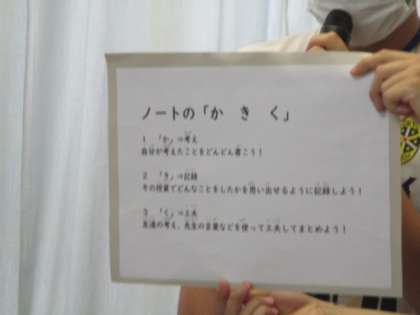 ノートの「か き く」
1 「か」⇒考え
自分が考えたことをどんどん書こう！
2 「き」⇒記録
その授業でどんなことをしたかを思い出せるように記録しよう！
3 「く」⇒工夫
友達の考え、先生の言葉などを使って工夫してまとめよう！